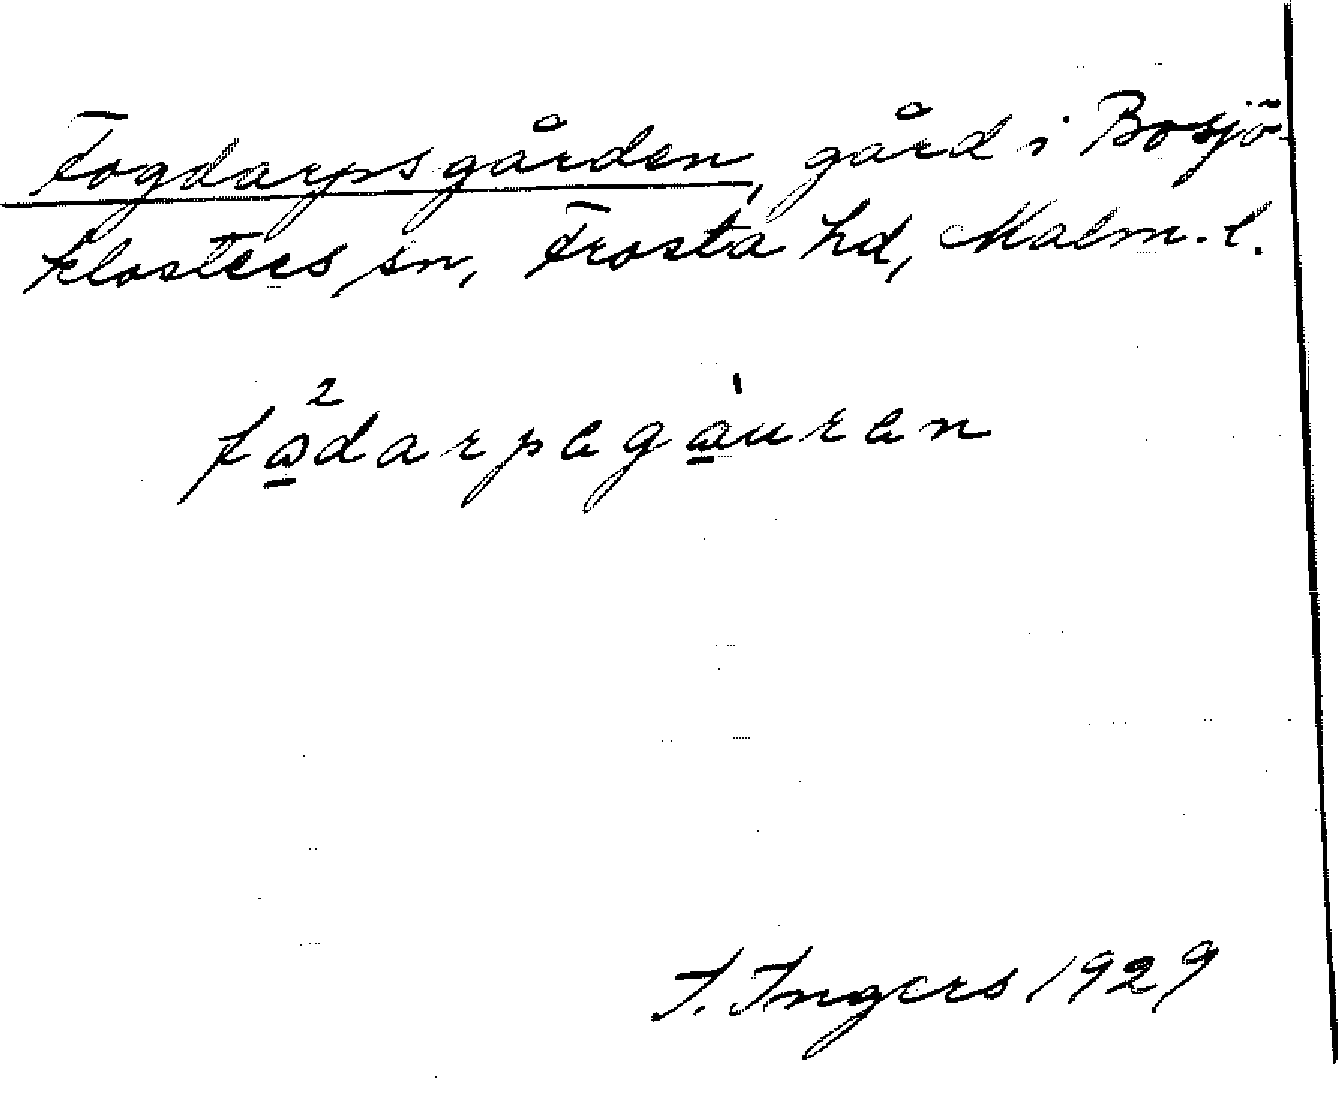 Fogdarpsgården, gård i Bosjö-
klosters sn, Frosta hd, Malm. l.
fa̲²darpega̲̍uren
I. Ingers 1929